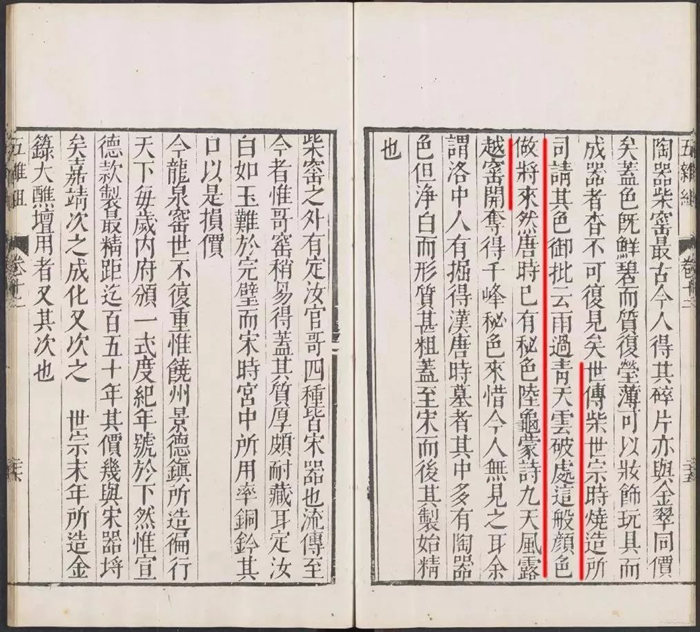 五雜組
卷十二
陶器柴窰最古今人得其碎片亦與金翠同價
矣蓋色旣鮮碧而質復瑩薄可以妝飾玩具而
成器者杳不可復見矣世傳柴世宗時燒造所
司請其色御批云雨過靑天雲破處這般顏色
做將來然唐時已有秘色陸龜蒙詩九天風露
越窰開奪得千峰秘色來惜今人無見之耳余
謂洛中人有掘得漢唐時墓者其中多有陶器
色但淨白而形質甚粗蓋至宋而後其製始精
也
柴窰之外有定汝官哥四種皆宋器也流傳至
今者惟哥窰稍易得蓋其質厚頗耐藏耳定汝
白如玉難於完璧而宋時宮中所用率銅鈐其
口以是損價
今龍泉窰世不復重惟饒州景德鎮所造徧行
天下每歲內府頒一式度紀年號於下然惟宣
德款製最精距迄百五十年其價幾與宋器埒
矣嘉靖次之成化又次之 世宗末年所造金
籙大醮壇用者又其次也
五雜組
卷十二